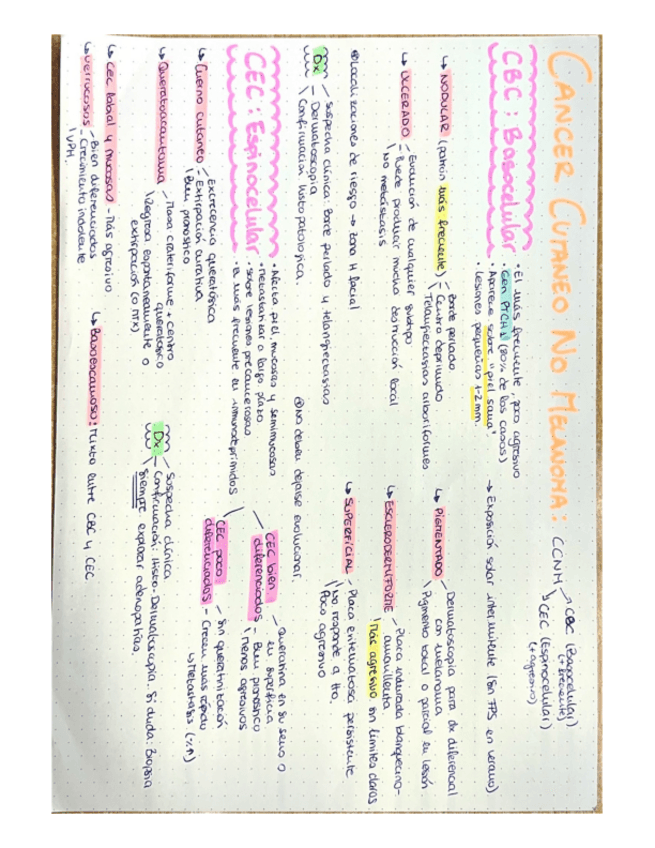 CANCER CUTANEO NO MELANOMA:
CCNM
CBC (Basocelular)
(+ frecuente)
CEC (Espinocelular)
(+ agresivo)
CBC: Basocelular
• El más frecuente poco agresivo
• Gen PTCH1 (80% de los casos)
• Aparece sobre "piel sana".
• Lesiones pequeñas 1-2 mm.
→ Exposición solar intermitente (sin FPS en verano)
↳ NODULAR (patrón más frecuente)
Borde perlado
Centro deprimido
Telangiectasias arboriformes
↳ ULCERADO
Evolución de cualquier subtipo
Puede producir mucha destrucción local
No metástasis
↳ PIGMENTADO
Dermatoscopia para dx diferencial
con melanoma
Pigmento total o parcial en lesión
↳ ESCLERODERMIFORME
Placa indurada blanquecino-
amarillenta
Más agresivo sin límites claros
↳ SUPERFICIAL
Placa eritematosa persistente
No responde a tto.
Poco agresivo
Localizaciones de riesgo → zona H facial
No deben dejarse evolucionar.
Dx
Sospecha clínica: Borde perlado y telangiectasias
Dermatoscopia
Confirmación histopatológica.
CEC: Espinocelular
• Afecta piel, mucosas y semimucosas
• Metastatizar a largo plazo
• sobre lesiones precancerosas
• El más frecuente en inmunodeprimidos
CEC bien
diferenciados
Queratina en su seno o
en superficie
Buen pronóstico
Menos agresivos
CEC poco
diferenciados
Sin queratinización
Crecen más rápido
↳ Metástasis (%↑)
↳ Cuerno cutaneo
Excrecencia queratósica
Extirpación curativa
Buen pronóstico
↳ Queratoacantoma
Masa crateriforme + centro
queratósico
Regresa espontaneamente o
extirpación (o MTX)
↳ CEC labial y mucosas - Más agresivo
↳ Verrucosos
Bien diferenciados
Crecimiento indolente
VPH.
↳ Basoescamoso: Mixto entre CBC y CEC
Dx
Sospecha clínica
Confirmación: Histo-Dermatoscopia. Si duda: Biopsia
Siempre explorar adenopatías.